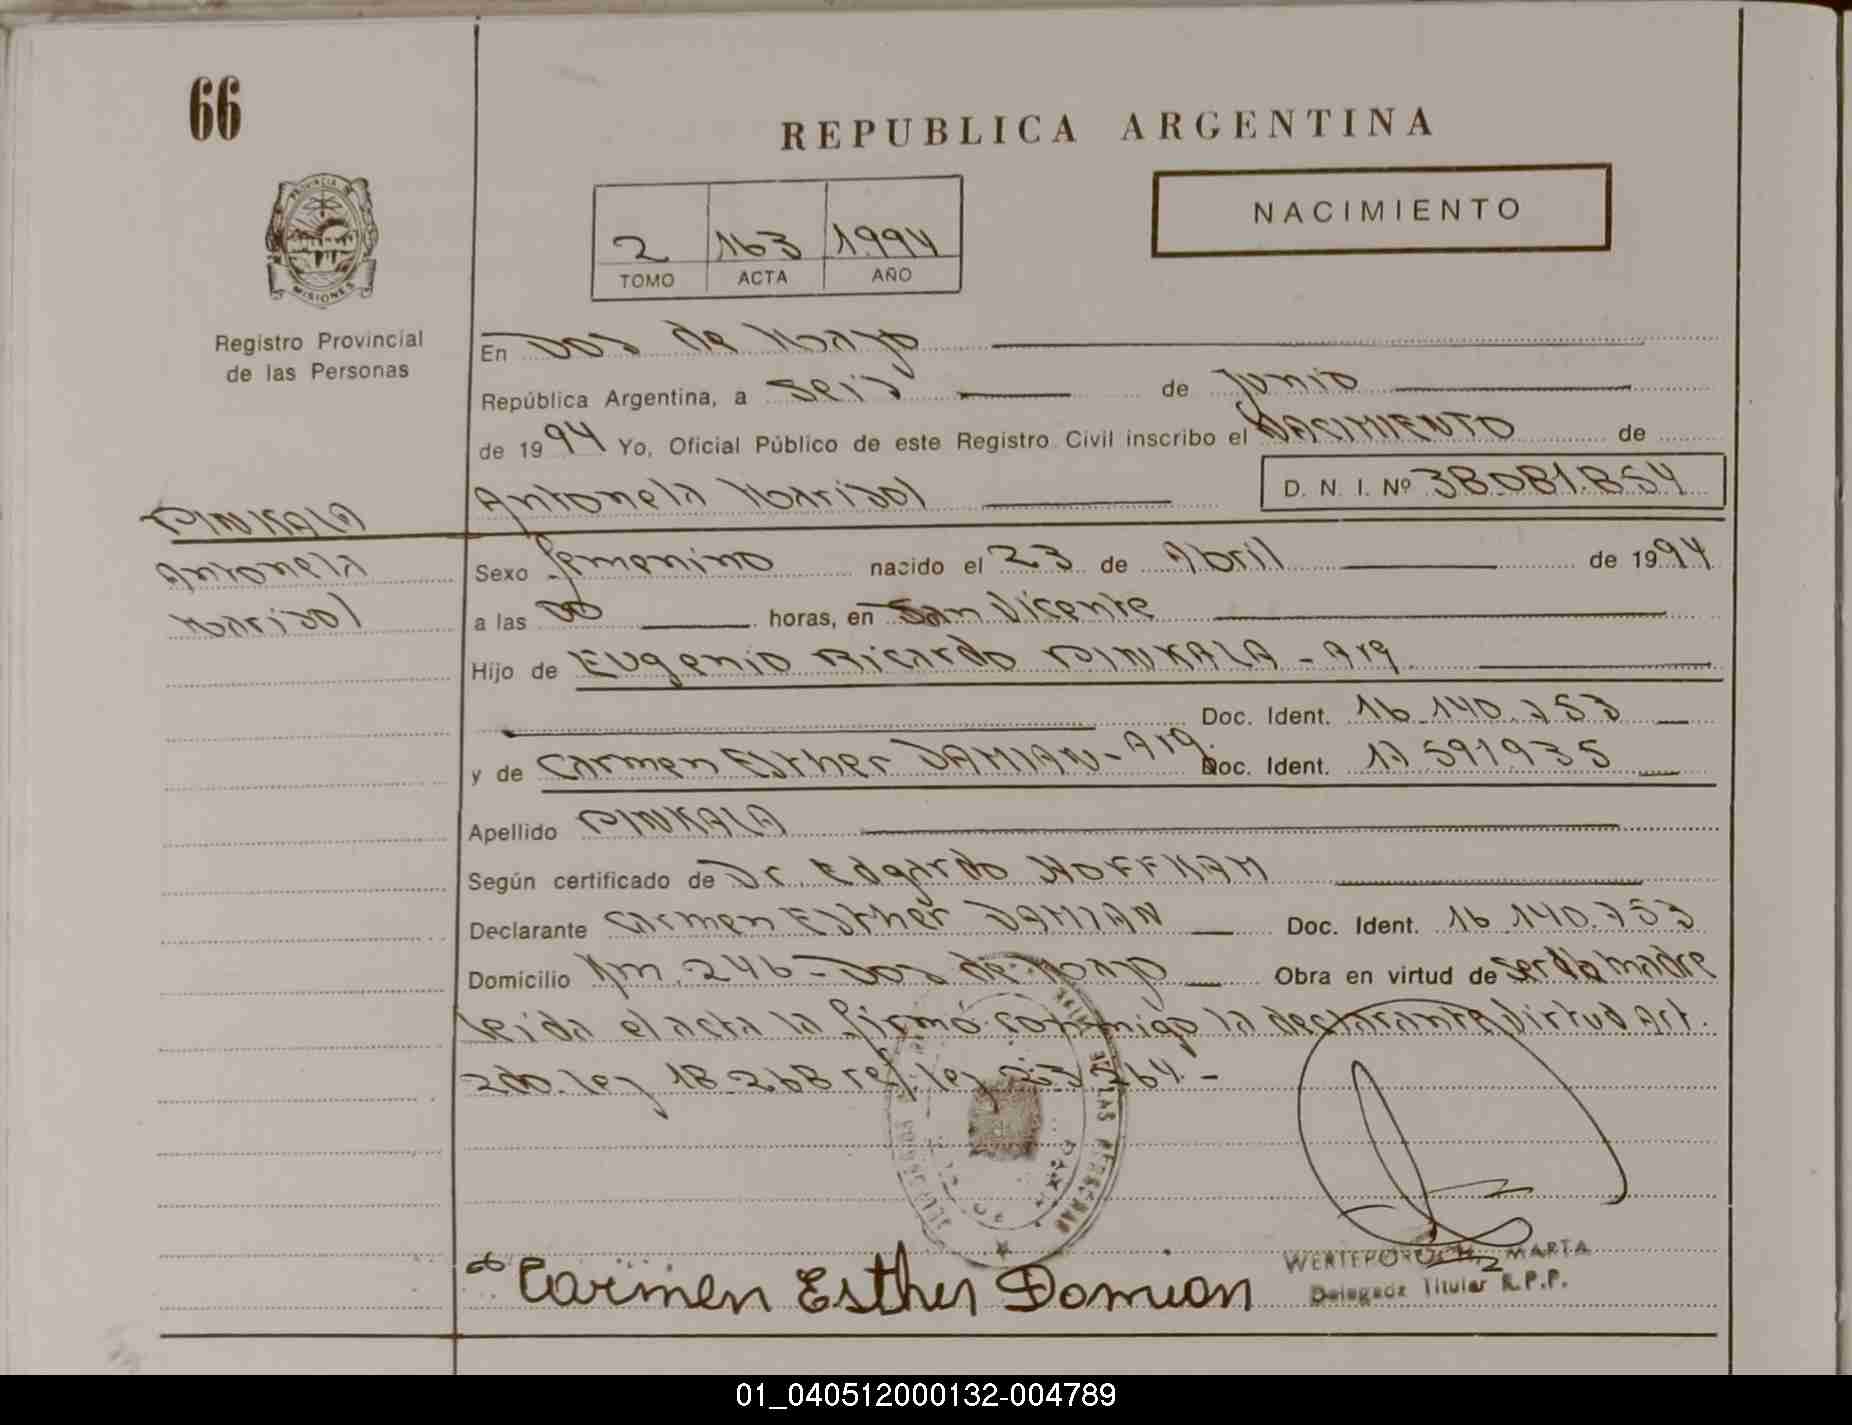 66
REPUBLICA ARGENTINA
NACIMIENTO
2 163 1994
TOMO ACTA AÑO
PROVINCIA DE
MISIONES
Registro Provincial
de las Personas
En Dos de Mayo
República Argentina, a seis de Junio
de 1994 Yo, Oficial Público de este Registro Civil inscribo el NACIMIENTO de
Antonela Marisol D. N. I. Nº 38.081.854
PINKALA
Antonela
Marisol
Sexo femenino nacido el 23 de Abril de 1994
a las 00 horas, en San Vicente
Hijo de Eugenio Ricardo PINKALA - Arg
Doc. Ident. 16.140.753
y de Carmen Esther DAMIAN - Arg. Doc. Ident. 17.591.935
Apellido PINKALA
Según certificado de Dr. Edgardo HOFFMAM
Declarante Carmen Esther DAMIAN Doc. Ident. 16.140.753
Domicilio Km. 246 - Dos de Mayo Obra en virtud de ser la madre
leida el acta la firmó conmigo la declarante virtud Art.
2do. ley 18.268 ref. ley 23.264. -
DE LAS PERSONAS
Carmen Esther Domian
MARTA
Delegada Titular R.P.P.
01_040512000132-004789